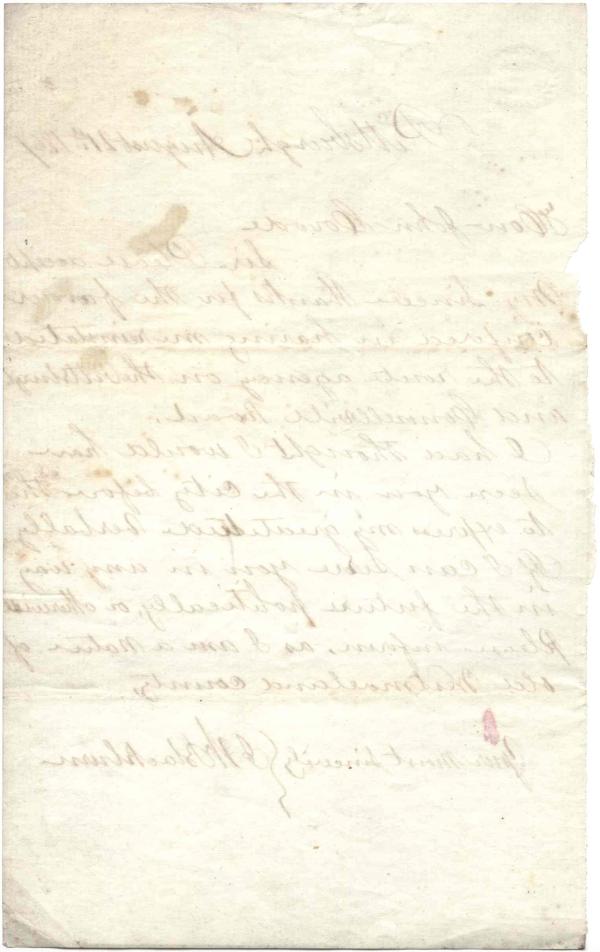 Pittsburgh August 21st 186
Hon John Covode
Sir Please accept
My Sincere thanks for the favor
Confered in having me reinstated
to the route agency on the Pittsburgh
and Connellsville Road.
I had thought I would have
seen you in the City before this
to express my gratitude Verbally
If I can serve you in any way
in the future politically or otherwise
please inform, as I am a native of
old Westmoreland County,
Your Most Sincerely J W Blackburn